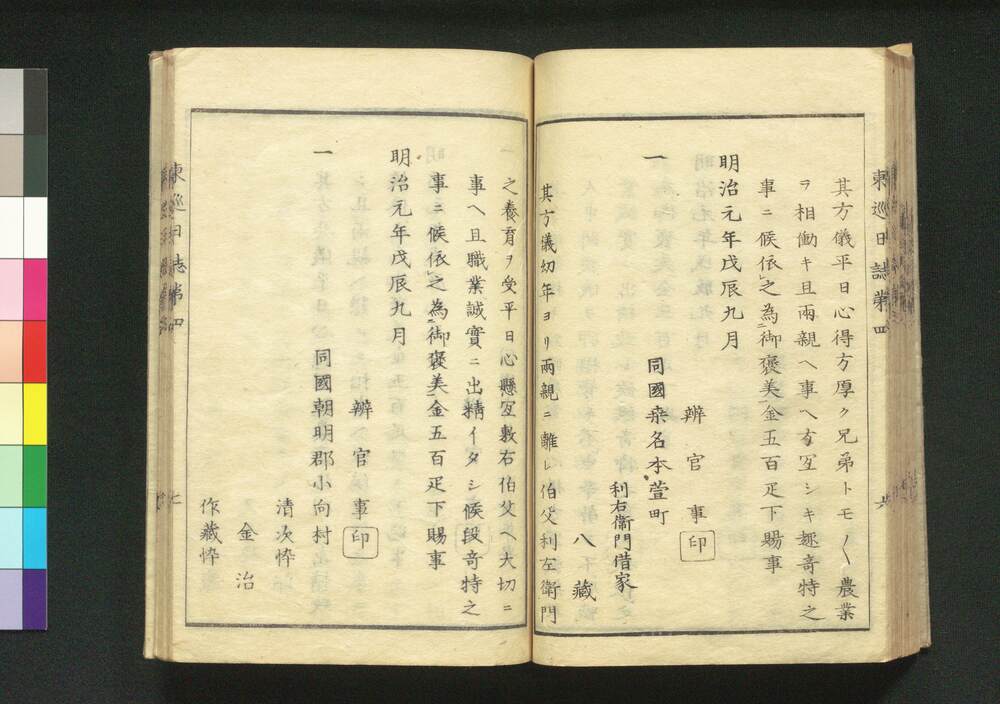 其方儀平日心得方厚ク兄弟トモ〳〵農業
ヲ相働キ且兩親ヘ事ヘ方宜シキ趣奇特之
事ニ候依之為御褒美金五百疋下賜事
明治元年戊辰九月
辨官事 印
一 同國桒名本萱町
利右衞門借家
八藏
其方儀幼年ヨリ兩親ニ離レ伯父利左衛門
之養育ヲ受平日心懸宜敷右伯父ヘ大切ニ
事ヘ且職業誠實ニ出精イタシ候段奇特之
事ニ候依之為御褒美金五百疋下賜事
明治元年戊辰九月
辨官事 印
一 同國朝明郡小向村
清次悴
金治
作藏悴
東巡日誌第四
東巡日誌第四